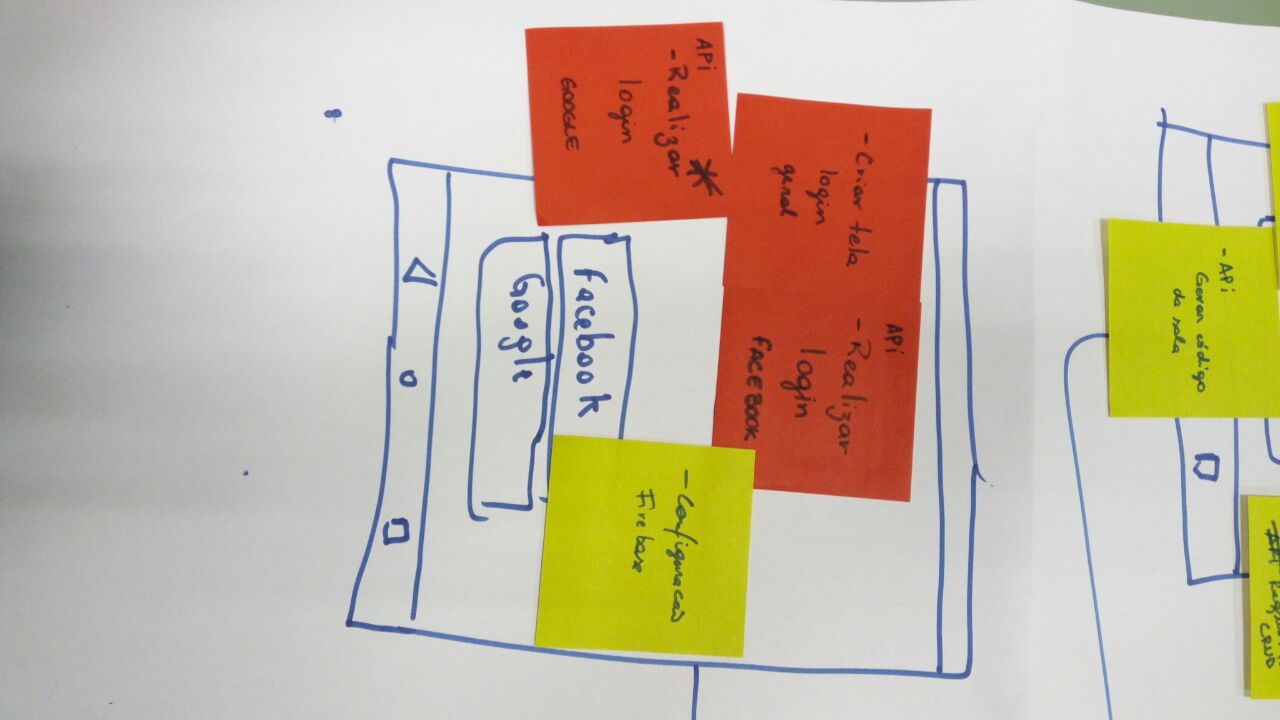 CRUD
- APi
Gerar código
da sala
- Criar tela
login
geral
APi
- Realizar
login
FACEBOOK
APi *
- Realizar
login
GOOGLE
- Configuracao
Firebase
Facebook
Google